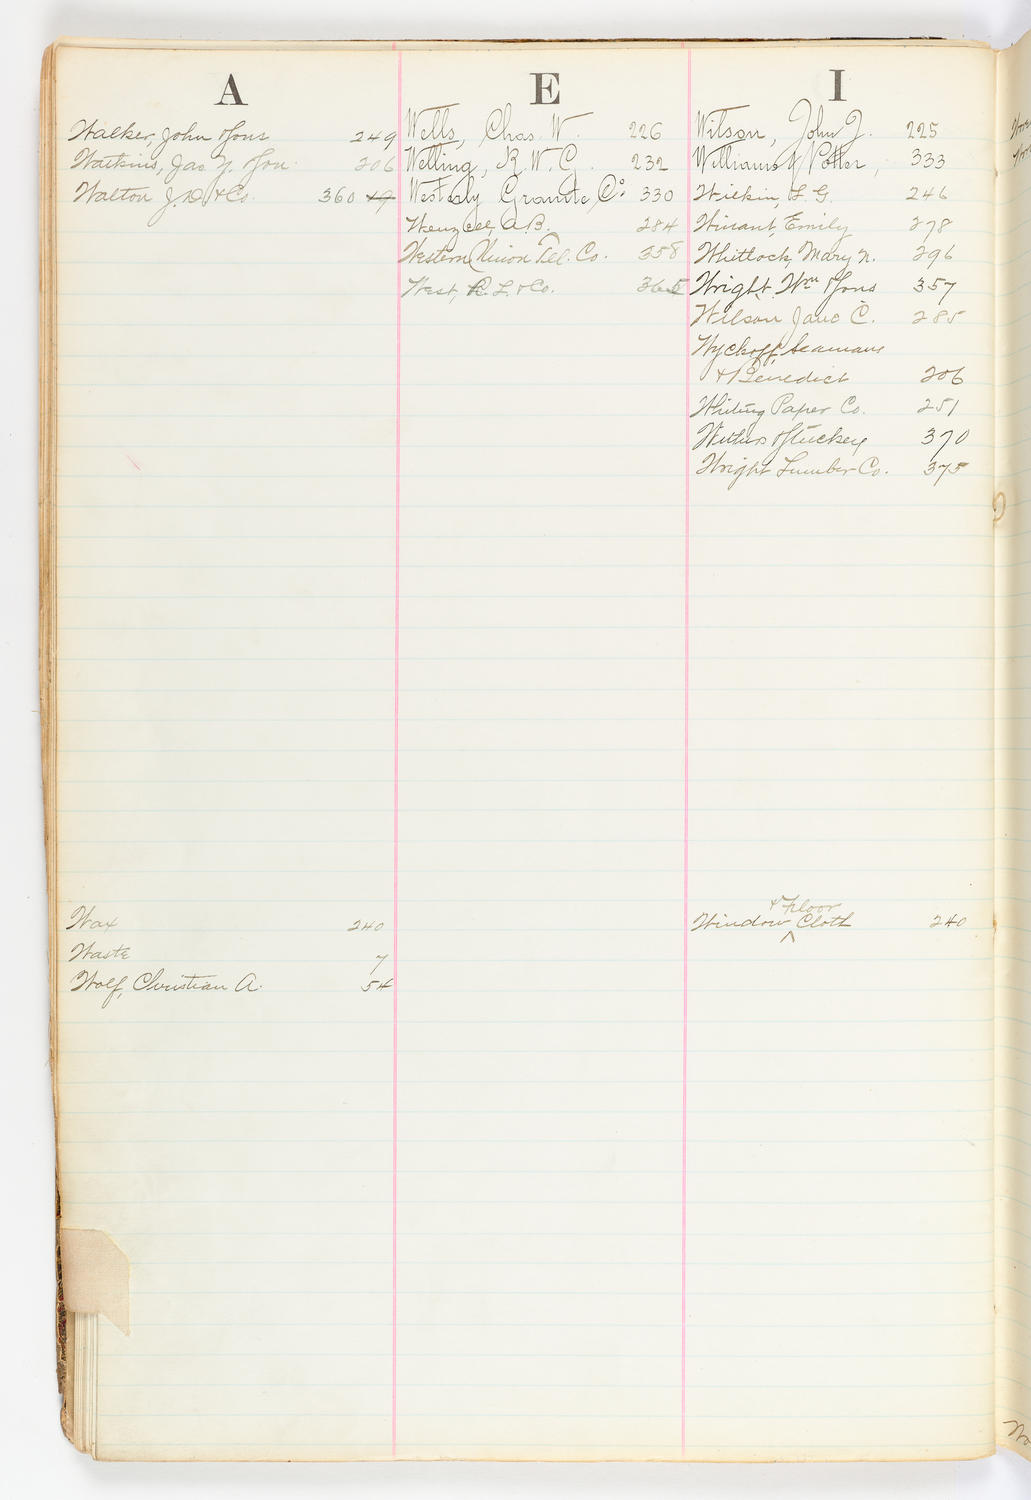 A
Walker, John & Sons 249
Watkins, Jas Y. & Son 206
Walton J. D. & Co. 360 49
Wax 240
Waste 7
Wolf, Christian A. 54
E
Wells, Chas. W. 226
Welling, R. W. G. 232
Westerly Granite Co. 330
Wenzell, A. B. 284
Western Union Tel. Co. 358
West, R. L. & Co. 365
I
Wilson, John J. 225
Williams & Potter, 333
Wilkin, L. G. 246
Winant, Emily 278
Whitlock, Mary N. 296
Wright, Wm & Sons 357
Wilson, Jane C. 285
Wyckoff, Seamans
& Benedict 206
Whiting Paper Co. 251
Withers & Stuckey 370
Wright Lumber Co. 375
& Floor
Window Cloth 240